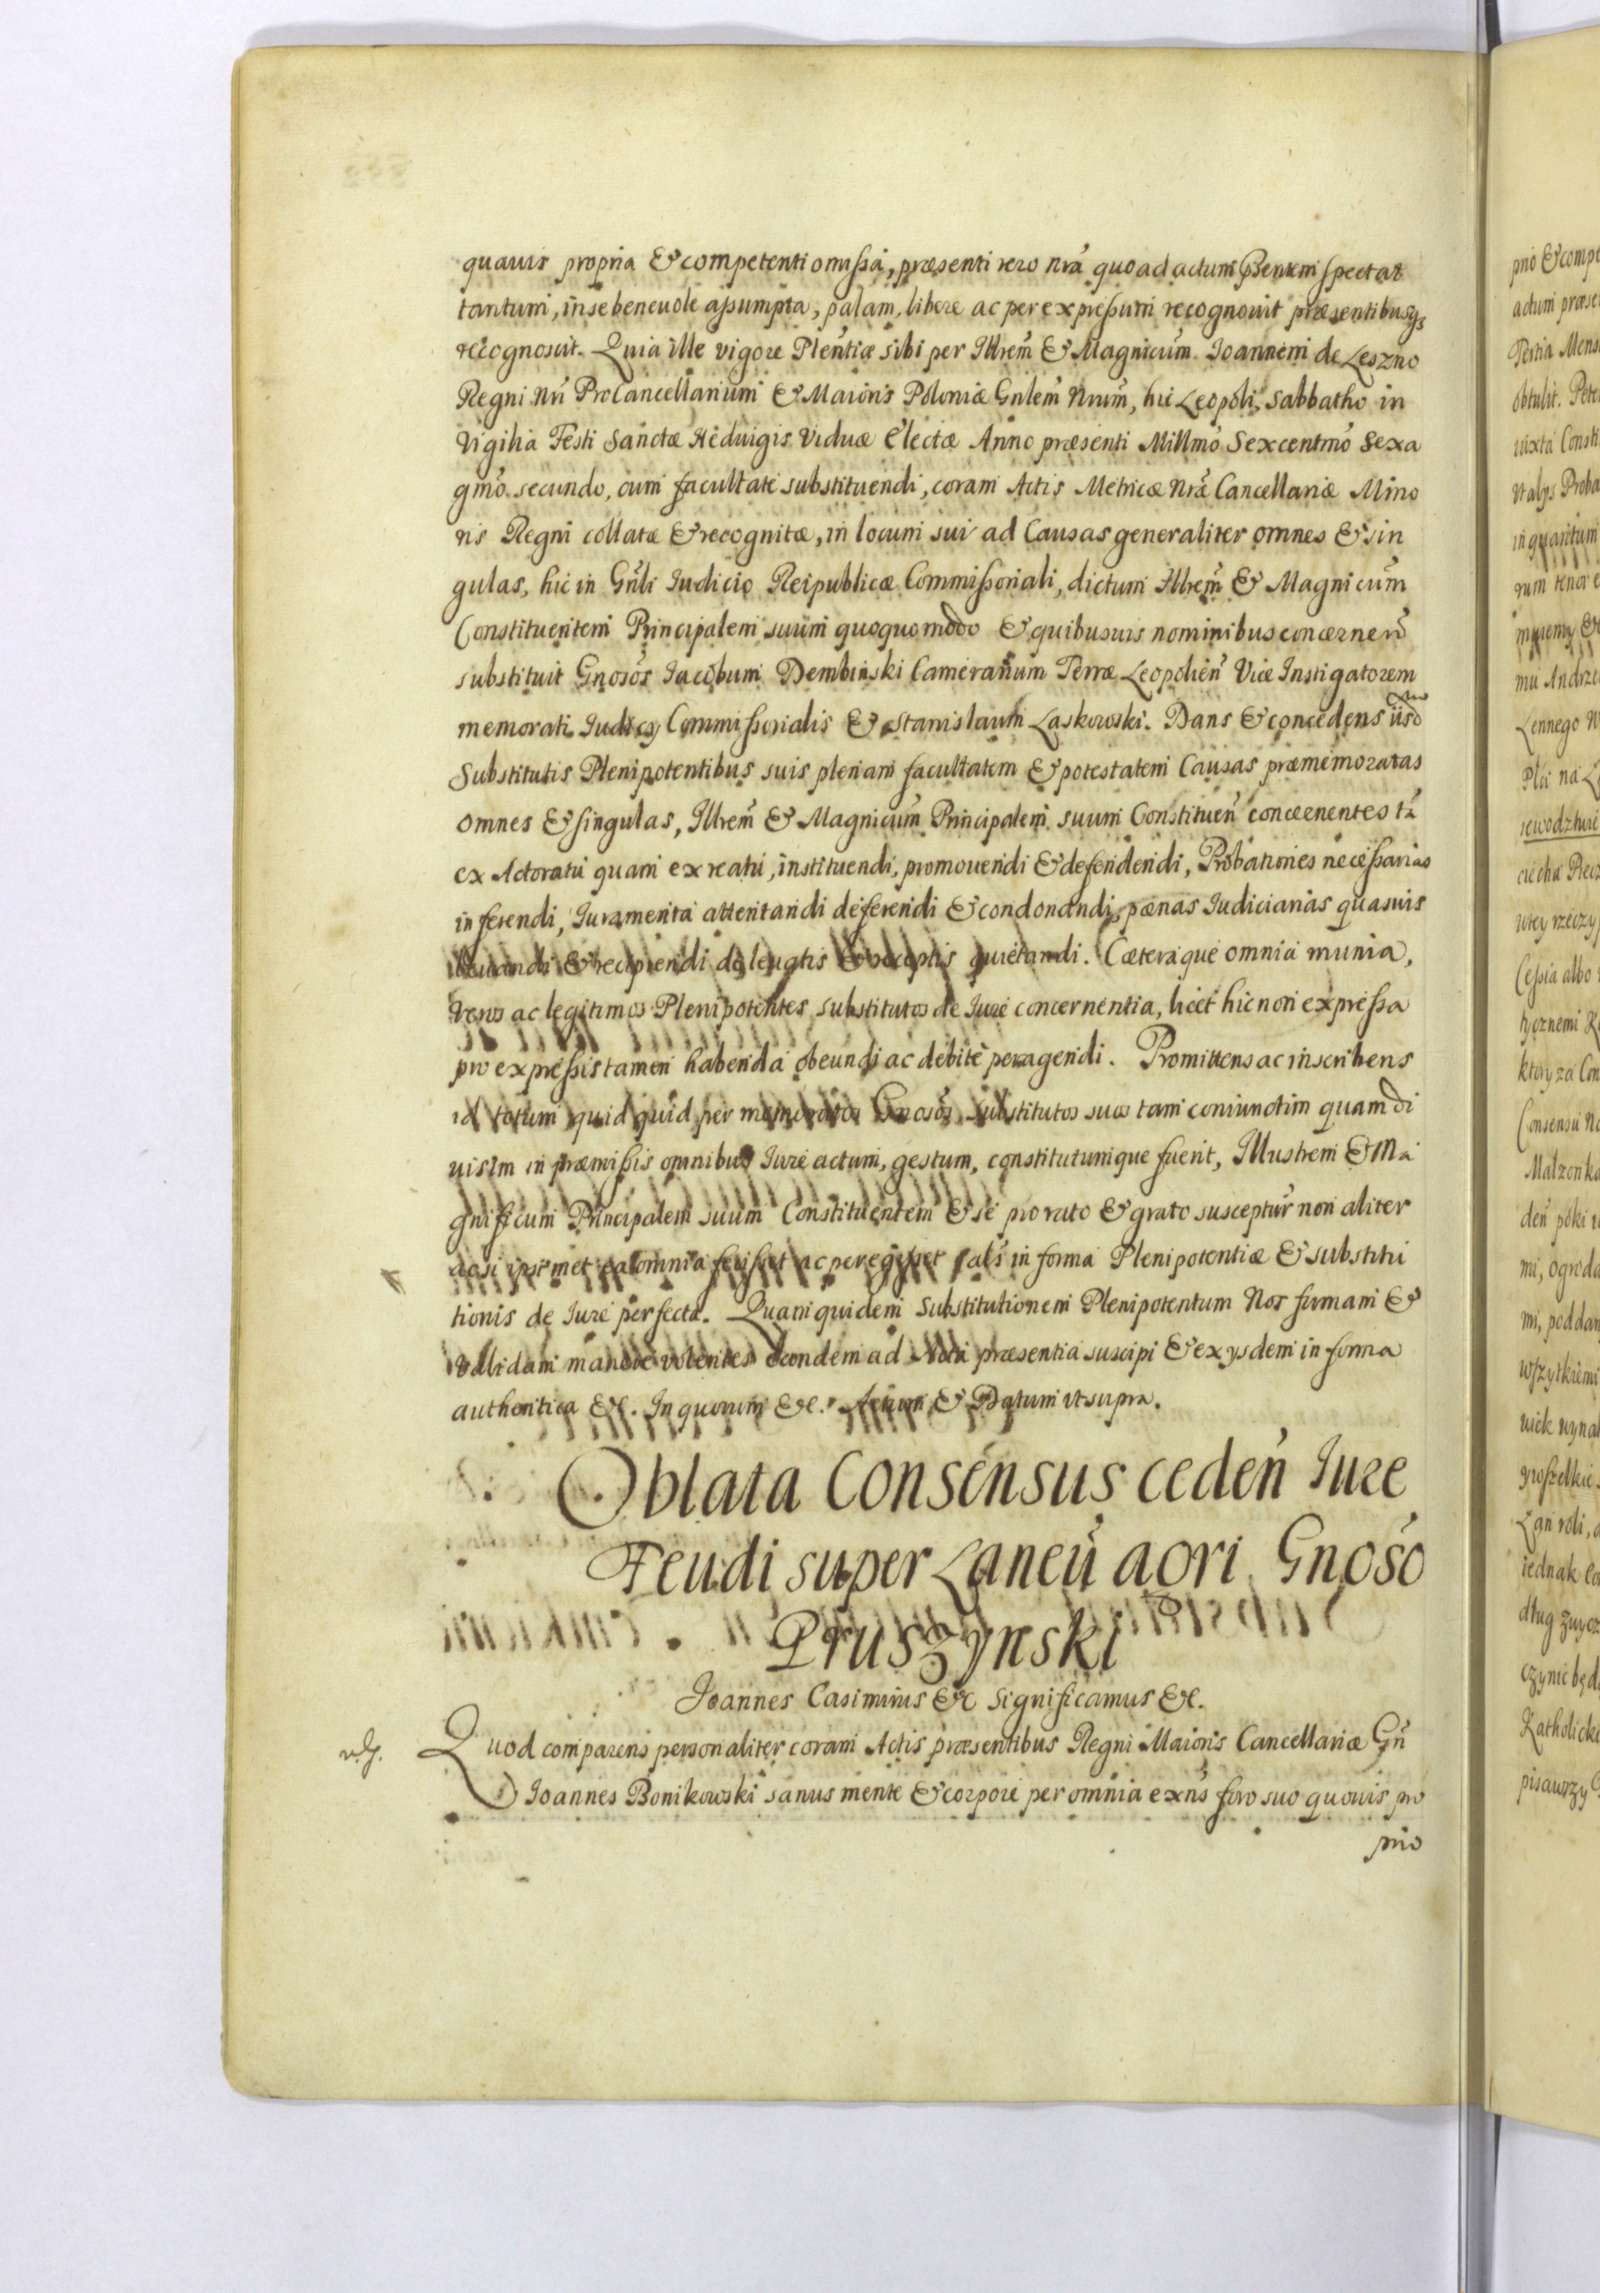 quavis propria & competenti omissa, præsenti vero nrã quo ad actum pñentem spectat
tantum, in se benevole assumpta, palam, libere ac per expressum recognovit præsentibusqs
recognoscit. Quia ille vigore Pleñtiæ sibi per Illrem̃ & Magnicum̃ Joannem de Leszno
Regni Nri ProCancellarium & Maioris Poloniæ Gnlem̃ Nrum̃, hic Leopoli, Sabbatho in
Vigilia Festi Sanctæ Heduigis Viduæ Electæ Anno præsenti Millmõ Sexcentmõ Sexa
gmõ secundo, cum facultate substituendi, coram Actis Metricæ Nræ̃ Cancellariæ Mino
ris Regni collatæ & recognitæ, in locum sui ad Causas generaliter omnes & sin
gulas, hic in Gnli Iudicio Reipublicæ Commissoriali, dictum Illrem̃ & Magnicum̃
Constituentem Principalem suum quoquomodo & quibusvis nominibus concerneñ
substituit Gnosos̃ Iacobum Dembinski Camerarium Terræ Leopolieñ Vice Instigatorem
memorati Iudicy Commissorialis & Stanislaum Laskowski. Dans & concedens iisd
Substitutis Plenipotentibus suis plenam facultatem & potestatem Causas præmemoratas
omnes & singulas, Illrem̃ & Magnicum̃ Principalem suum Constitueñ concernentes tã
ex Actoratu quam ex reatu, instituendi, promovendi & defendendi, Probationes necessarias
inferendi, Iuramenta attentandi deferendi & condonandi, pænas Iudiciarias quasvis
levandi & recipiendi de levatis & receptis quietandi. Cæteraque omnia munia,
veros ac legitimos Plenipotentes substitutos de Iure concernentia, licet hic non expressa
pro expressis tamen habenda obeundi ac debite peragendi. Promittens ac inscribens
id totum quid quid per memoratos Gnosos̃ Substitutos suos tam coniunctim quam di
uisim in præmissis omnibus Iure actum, gestum, constitutumque fuerit, Illustrem & Ma
gnificum Principalem suum Constituentem & se pro rato & grato susceptur̃ non aliter
acsi ipsimet ea omnia fecisset ac peregisset sals̃ in forma Plenipotentiæ & substitu
tionis de Iure perfectæ. Quam quidem Substitutionem Plenipotentum Nos firmam &
validam manere volentes eandem ad Acta præsentia suscipi & ex ysdem in forma
authentica &c. In quorum &c. Actum & Datum vt supra.
Oblata Consensus cedeñ Iure
Feudi super Laneũ agri Gnosõ
Pruszynski
Joannes Casimirus &c Significamus &c.
Quod comparens personaliter coram Actis præsentibus Regni Maioris Cancellariæ Gñ
Joannes Bonikowski sanus mente & corpore per omnia exñs foro suo quovis pro
prio